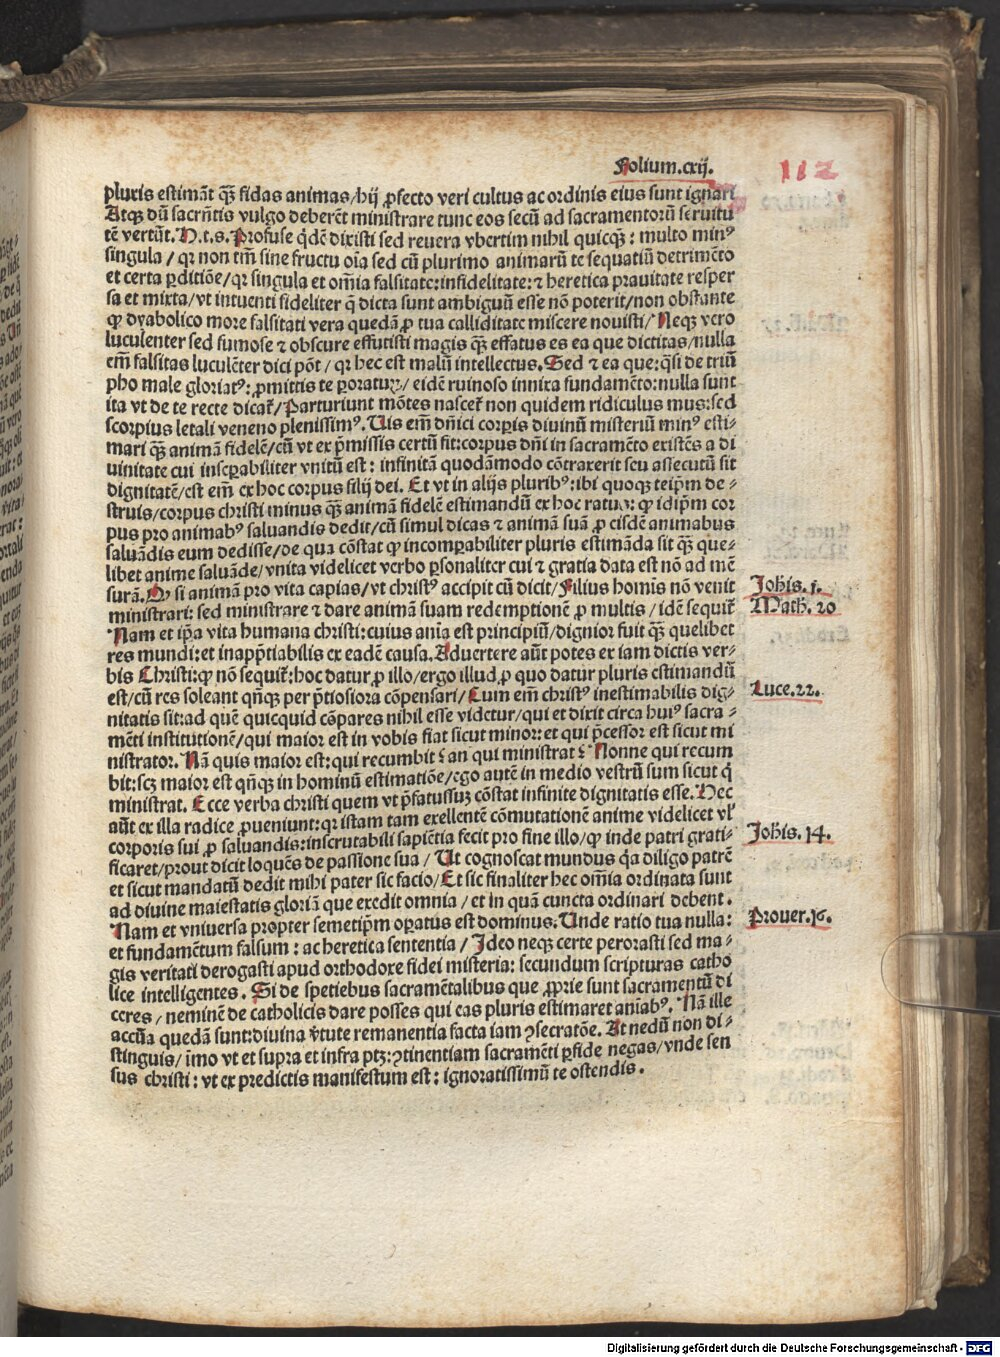 Folium.cxij.
112
pluris estimāt qꝫ fidas animas/hij ꝓfecto veri cultus ac ordinis eius sunt ignari
Atqꝫ dū sacrn̄tis vulgo deberēt ministrare tunc eos secū ad sacramentorū seruitu
tē vertūt. N.t.s. Profuse q̇dē dixisti sed reuera vbertim nihil quicqꝫ: multo minꝰ
singula / qꝛ non tm̄ sine fructu oīa sed cū plurimo animarū te sequatiū detrimēto
et certa ꝑditiōe/qꝛ singula et om̄ia falsitate:infidelitate:⁊ heretica prauitate resper
sa et mixta/vt intuenti fideliter q̄ dicta sunt ambiguū esse nō poterit/non obstante
ꝙ dyabolico more falsitati vera quedā ꝓ tua calliditate miscere nouisti/ Neqꝫ vero
luculenter sed fumose ⁊ obscure effutisti magis qꝫ effatus es ea que dictitas/nulla
em̄ falsitas luculēter dici pōt / qꝛ hec est malū intellectus. Sed ⁊ ea que:q̄si de triū
pho male gloriatꝰ: ꝓmittis te ꝑoraturꝫ/ eidē ruinoso innixa fundamēto:nulla sunt
ita vt de te recte dicat̄/ Parturiunt mōtes nascet̄ non quidem ridiculus mus:sed
scorpius letali veneno plenissimꝰ. Uis em̄ dn̄ici corꝑis diuinū misteriū minꝰ esti-
mari qꝫ animā fidelē/cū vt ex p̄missis certū fit:corpus dn̄i in sacramēto existēs a di
uinitate cui inseꝑabiliter vnitū est: infinitā quodāmodo cōtraxerit seu assecutū sit
dignitatē/est em̄ ex hoc corpus filij dei. Et vt in alijs pluribꝰ:ibi quoqꝫ teip̄m de-
struis/corpus christi minus qꝫ animā fidelē estimandū ex hoc ratus: ꝙ idip̄m cor
pus pro animabꝰ saluandis dedit/cū simul dicas ⁊ animā suā ꝓ eisdē animabus
saluādis eum dedisse/de qua cōstat ꝙ incomꝑabiliter pluris estimāda sit qꝫ que-
libet anime saluāde/vnita videlicet verbo ꝑsonaliter cui ⁊ gratia data est nō ad mē
surā. Ꝙ si animā pro vita capias/vt christꝰ accipit cū dicit/Filius homīs nō venit
Johīs. 1.
ministrari: sed ministrare ⁊ dare animā suam redemptionē ꝓ multis / idē sequit̄
Math. 20
Nam et ip̄a vita humana christi:cuius anīa est principiū/dignior fuit qꝫ quelibet
res mundi:et inapp̄tiabilis ex eadē causa. Aduertere aūt potes ex iam dictis ver-
bis Christi:ꝙ nō sequit̄:hoc datur ꝓ illo/ergo illud ꝓ quo datur pluris estimandū
est/cū res soleant qn̄qꝫ per p̄tiosiora cōpensari/ Cum em̄ christꝰ inestimabilis dig-
Luce. 22.
nitatis sit:ad quē quicquid cōpares nihil esse videtur/qui et dixit circa huiꝰ sacra-
mēti institutionē/qui maior est in vobis fiat sicut minor:et qui p̄cessor est sicut mi
nistrator. Nā quis maior est:qui recumbit ? an qui ministrat ? Nonne qui recum
bit:scꝫ maior est qn̄qꝫ in hominū estimatiōe/ego autē in medio vestrū sum sicut q̇
ministrat. Ecce verba christi quem vt p̄fatussuꝫ cōstat infinite dignitatis esse. Hec
aūt ex illa radice ꝓueniunt:qꝛ istam tam exellentē cōmutationē anime videlicet vl̄
corporis sui ꝓ saluandis:inscrutabili sapiētia fecit pro fine illo/ꝙ inde patri grati-
Johīs. 14.
ficaret/prout dicit loquēs de passione sua / Ut cognoscat mundus q̄a diligo patrē
et sicut mandatū dedit mihi pater sic facio/ Et sic finaliter hec om̄ia ordinata sunt
ad diuine maiestatis gloriā que excedit omnia / et in quā cuncta ordinari debent.
Nam et vniuersa propter semetip̄m oꝑatus est dominus. Unde ratio tua nulla:
Prouer. 16.
et fundamētum falsum : ac heretica sententia / Ideo neqꝫ certe perorasti sed ma-
gis veritati derogasti apud orthodoxe fidei misteria: secundum scripturas catho
lice intelligentes. Si de spetiebus sacramētalibus que ꝓprie sunt sacramentū di
ceres / neminē de catholicis dare posses qui eas pluris estimaret anīabꝰ. Nā ille
accn̄a quedā sunt:diuina v̄tute remanentia facta iam ꝯsecratōe. At nedū non di-
stinguis/ īmo vt et supra et infra ptꝫ:ꝯtinentiam sacramēti ꝑfide negas/vnde sen
sus christi : vt ex predictis manifestum est : ignoratissimū te ostendis.
Digitalisierung gefördert durch die Deutsche Forschungsgemeinschaft - DFG